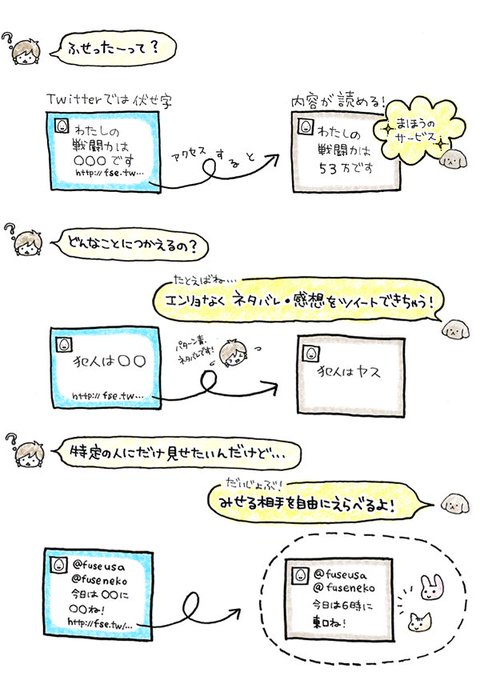 ?
ふせったーって?
Twitterでは伏せ字
内容が読める!
わたしの
戦闘力は
○○○です
http://fse.tw…
アクセスすると
わたしの
戦闘力は
53万です
まほうの
サービス
?
どんなことにつかえるの?
たとえばね…
エンリョなく ネタバレ・感想をツイートできちゃう!
犯人は○○
http://fse.tw…
パターン青、
ネタバレです!
犯人はヤス
?
特定の人にだけ見せたいんだけど…
だいじょぶ!
みせる相手を自由にえらべるよ!
@fuseusa
@fuseneko
今日は○○に
○○ね!
http://fse.tw/…
@fuseusa
@fuseneko
今日は6時に
東口ね!